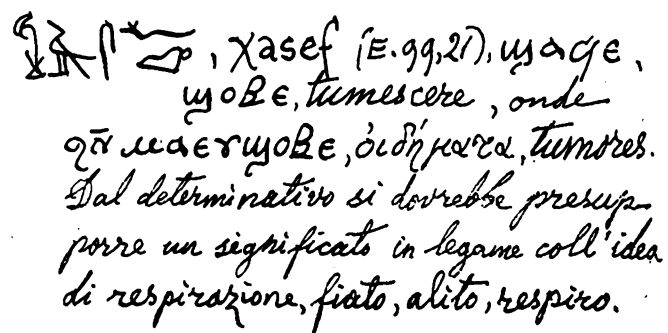 , χasef (E. 99, 21), ϣⲁϥⲉ,
ϣⲟⲃⲉ, tumescere, onde
ϩⲛ̄ ⲙⲁⲉⲩϣⲟⲃⲉ, ὀιδήματα, tumores.
Dal determinativo si dovrebbe presup-
porre un significato in legame coll'idea
di respirazione, fiato, alito, respiro.